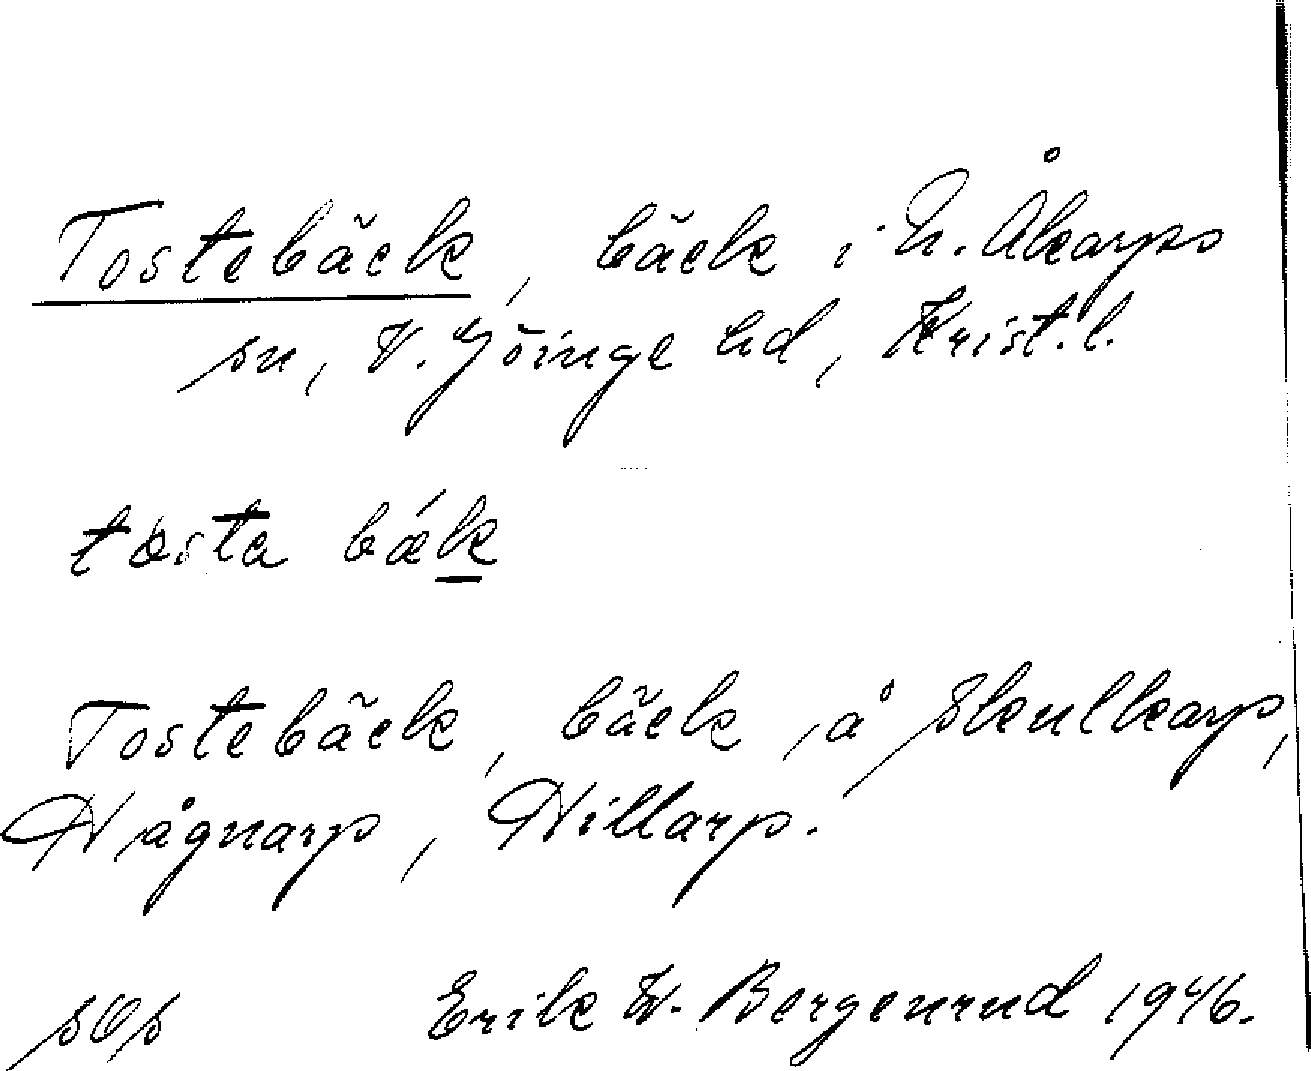 Tostebäck, bäck i N. Åkarps
sn, V. Göinge hd, Krist. l.
tosta bǽk
Tostebäck, bäck, å Skulkarp,
Vågnarp, Villarp.
Erik W. Bergenrud 1946.